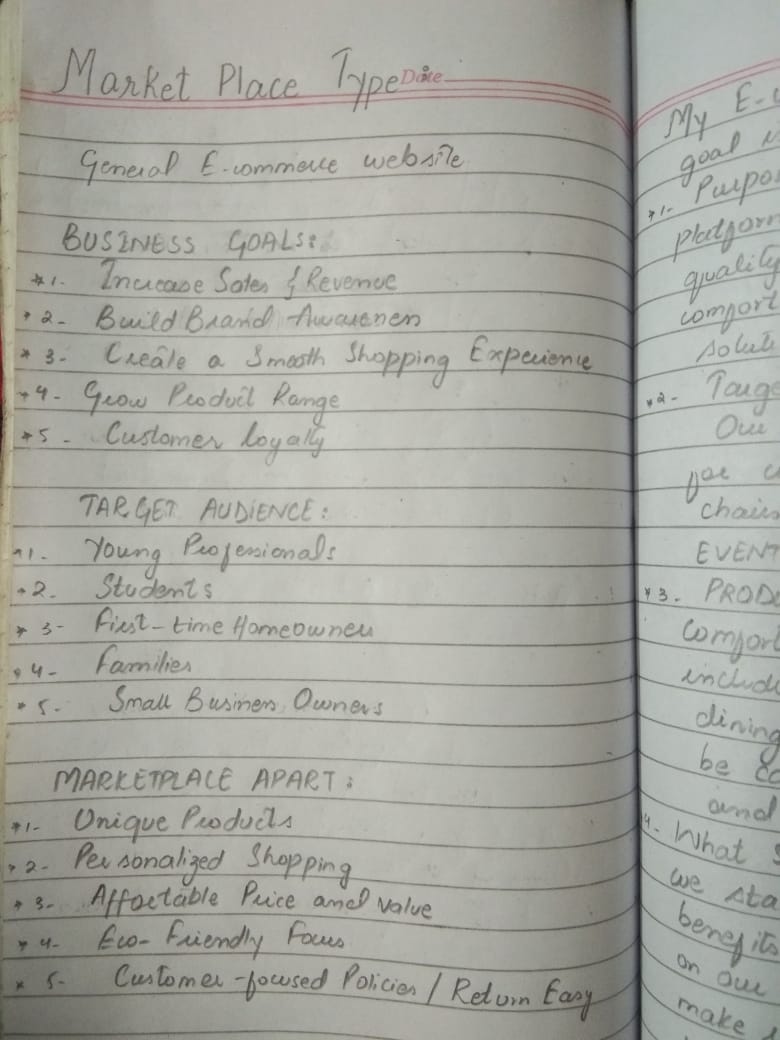 Market Place Type
Date
General E-commerce website
BUSINESS GOALS:
*1. Increase Sales & Revenue
*2- Build Brand Awareness
*3- Create a Smooth Shopping Experience
*4- Grow Product Range
*5- Customer loyally
TARGET AUDIENCE:
*1. Young Professionals
*2. Students
*3- First-time Homeowner
*4- Families
*5- Small Business Owners
MARKETPLACE APART:
*1- Unique Products
*2- Personalized Shopping
*3- Affoctable Price and value
*4- Eco-Friendly Focus
*5- Customer-focused Policies / Return Easy
My E-
goal
*1- Purpo
platform
quality
comfort
solut
*2- Targe
Our
for
chairs
EVENT
*3. PROD
Comfor
includ
dining
be
and
4- What
we sta
benefits
on our
make